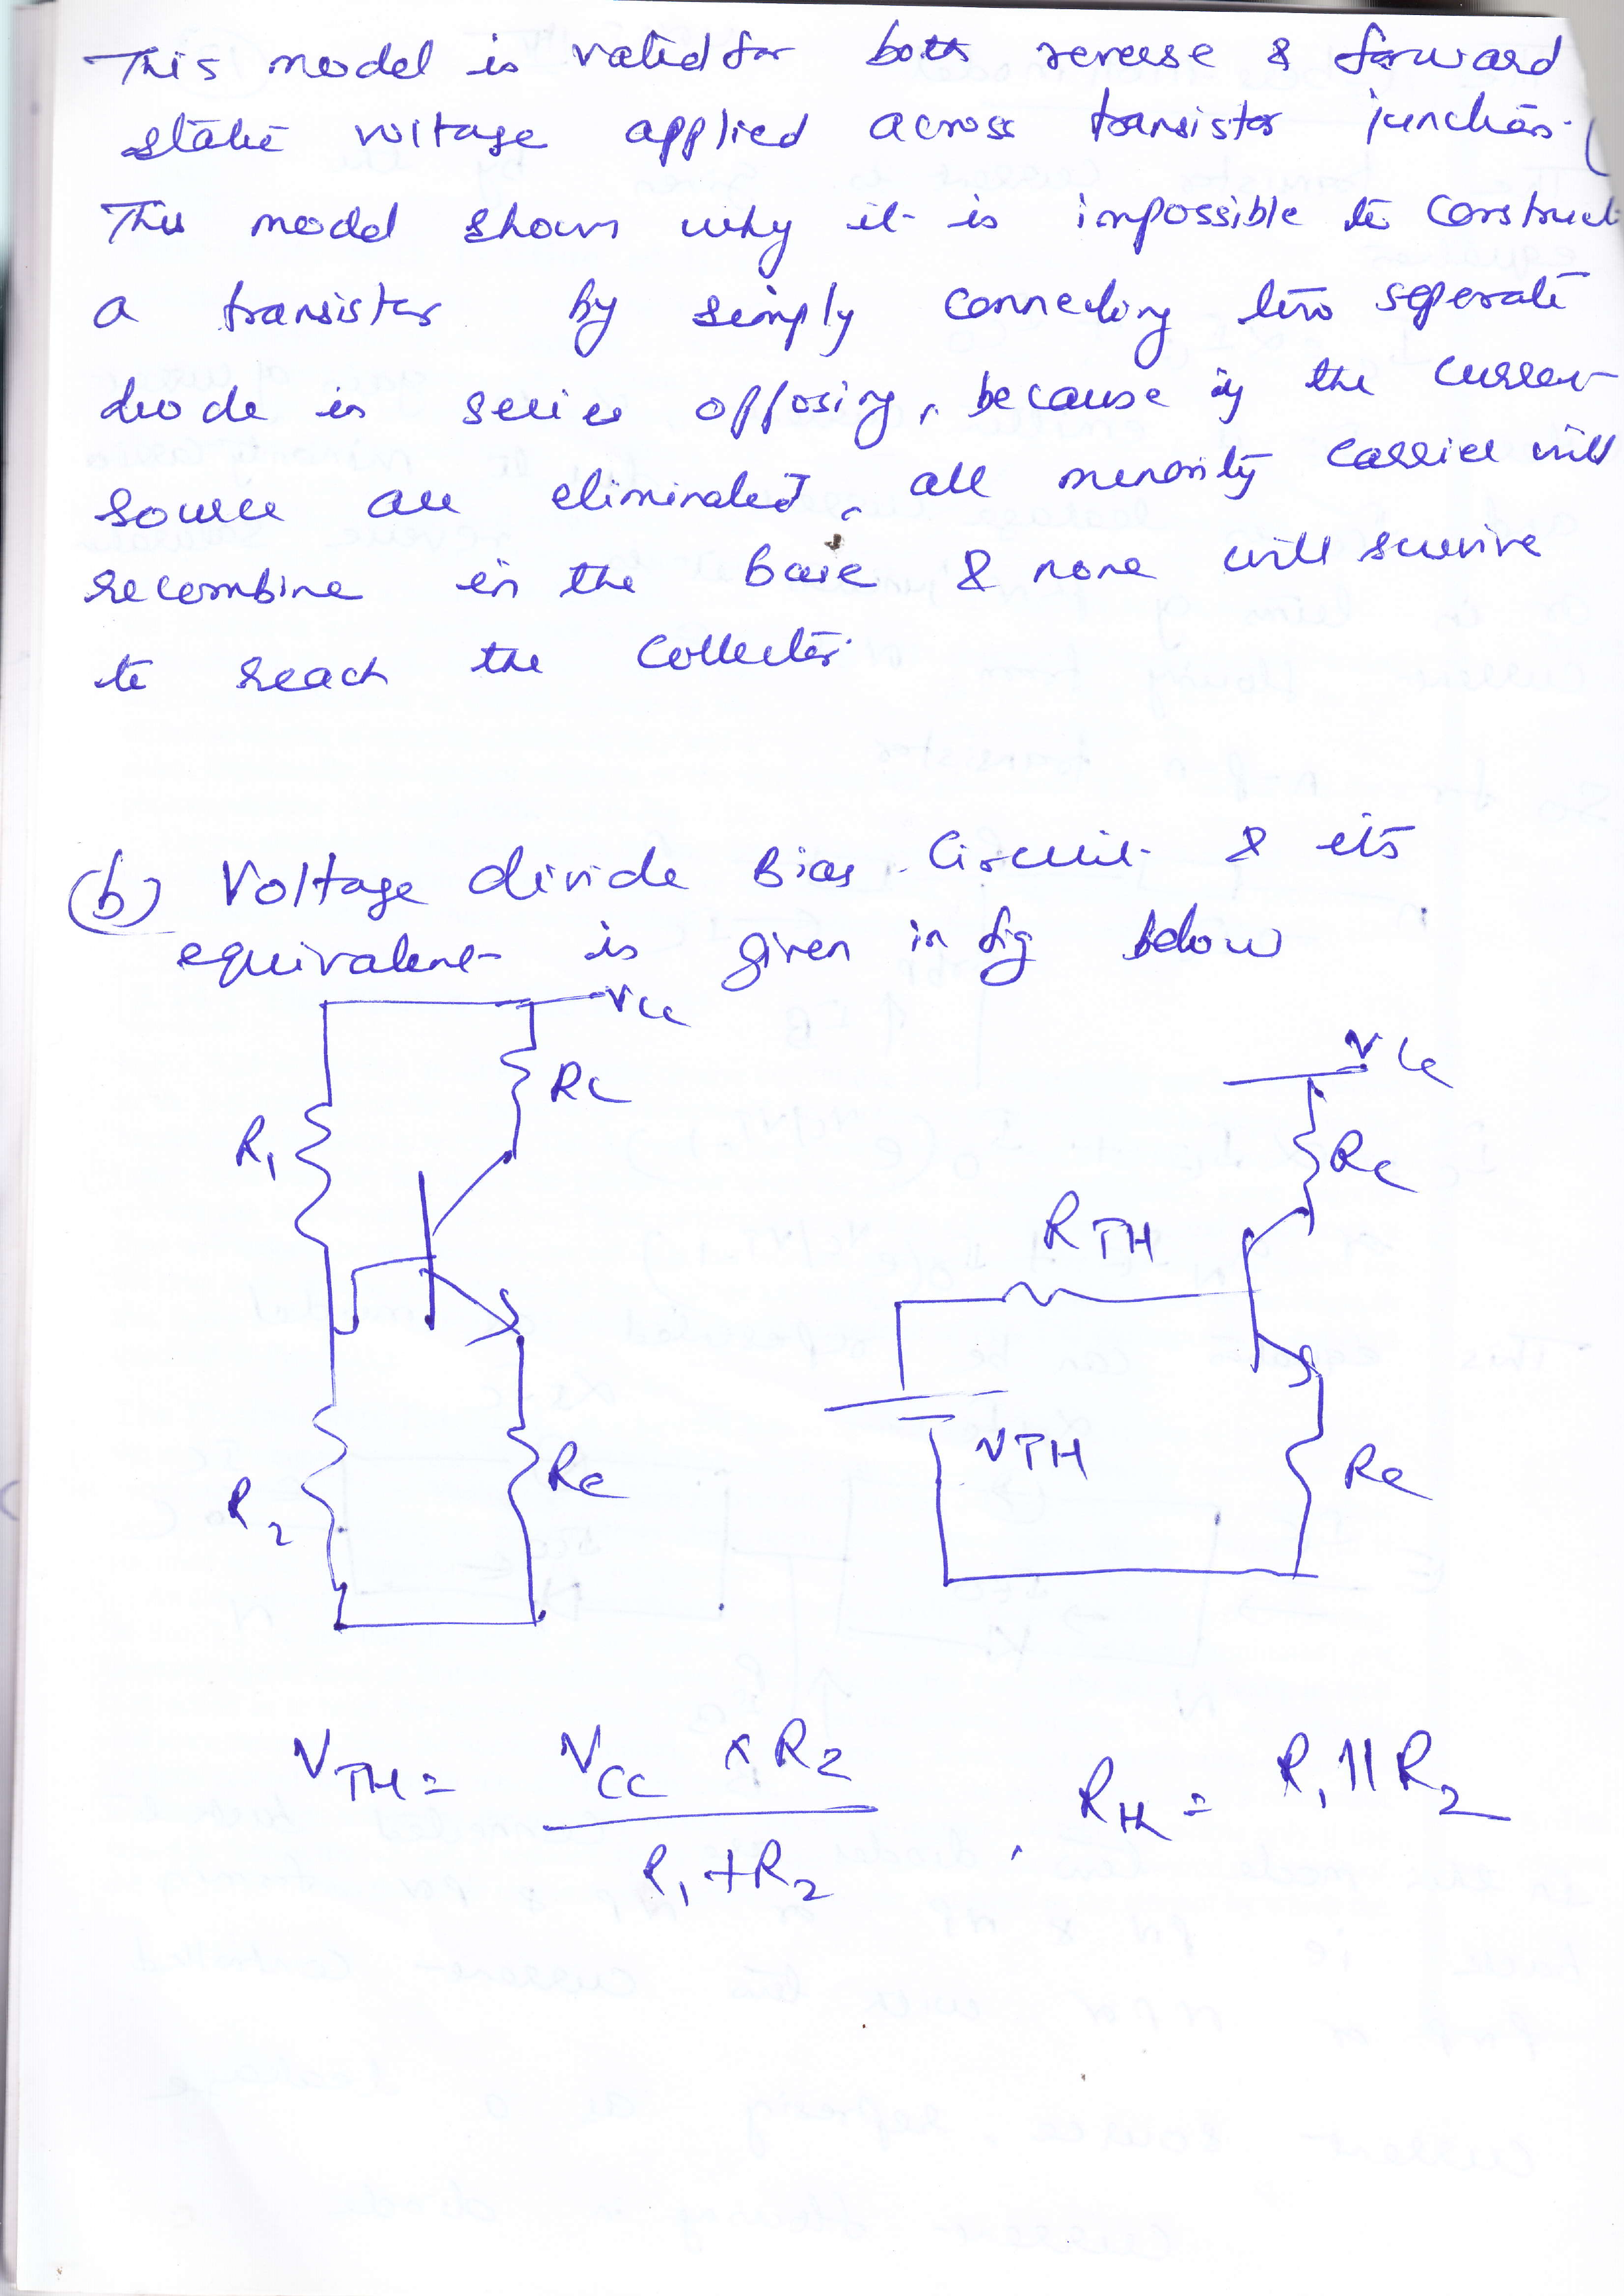 This model is valid for both reverse & forward
static voltage applied across transistor junction.
This model shows why it is impossible to construct
a transistor by simply connecting two seperate
diode in series opposing, because if the current
source are eliminated, all minority carrier will
recombine in the base & none will survive
to reach the collector.
(b) Voltage divide Bias Circuit & its
equivalent is given in fig below
VCC
RC
R1
R2
Re
VCC
RC
RTH
VTH
Re
VTH = VCC × R2 / R1 + R2 , RTH = R1 || R2